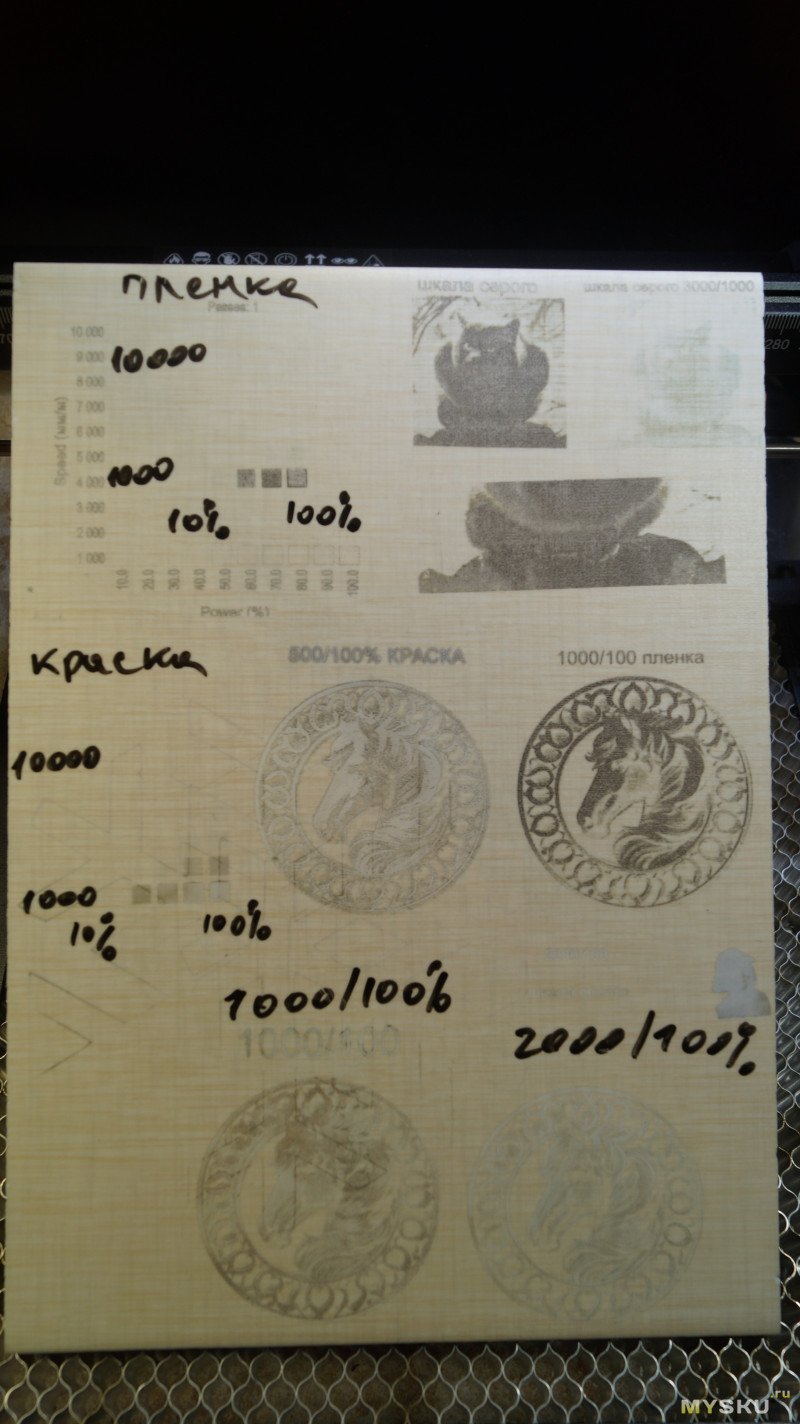 пленка
Passes: 1
шкала серого
шкала серого 3000/1000
280
10 000
10000
9 000
8 000
7 000
6 000
5 000
1000
4 000
3 000
2 000
1 000
10% 100%
Speed (мм/м)
10.0 20.0 30.0 40.0 50.0 60.0 70.0 80.0 90.0 100.0
Power (%)
краска
800/100% КРАСКА
1000/100 пленка
10000
1000
10% 100%
1000/100%
2000/100%
MYSKU.ru